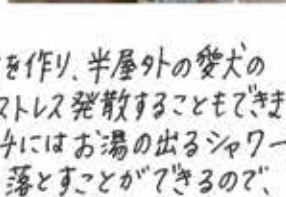 を作り、半屋外の愛犬の
ストレス発散することもできま
チにはお湯の出るシャワー
落とすことができるので、